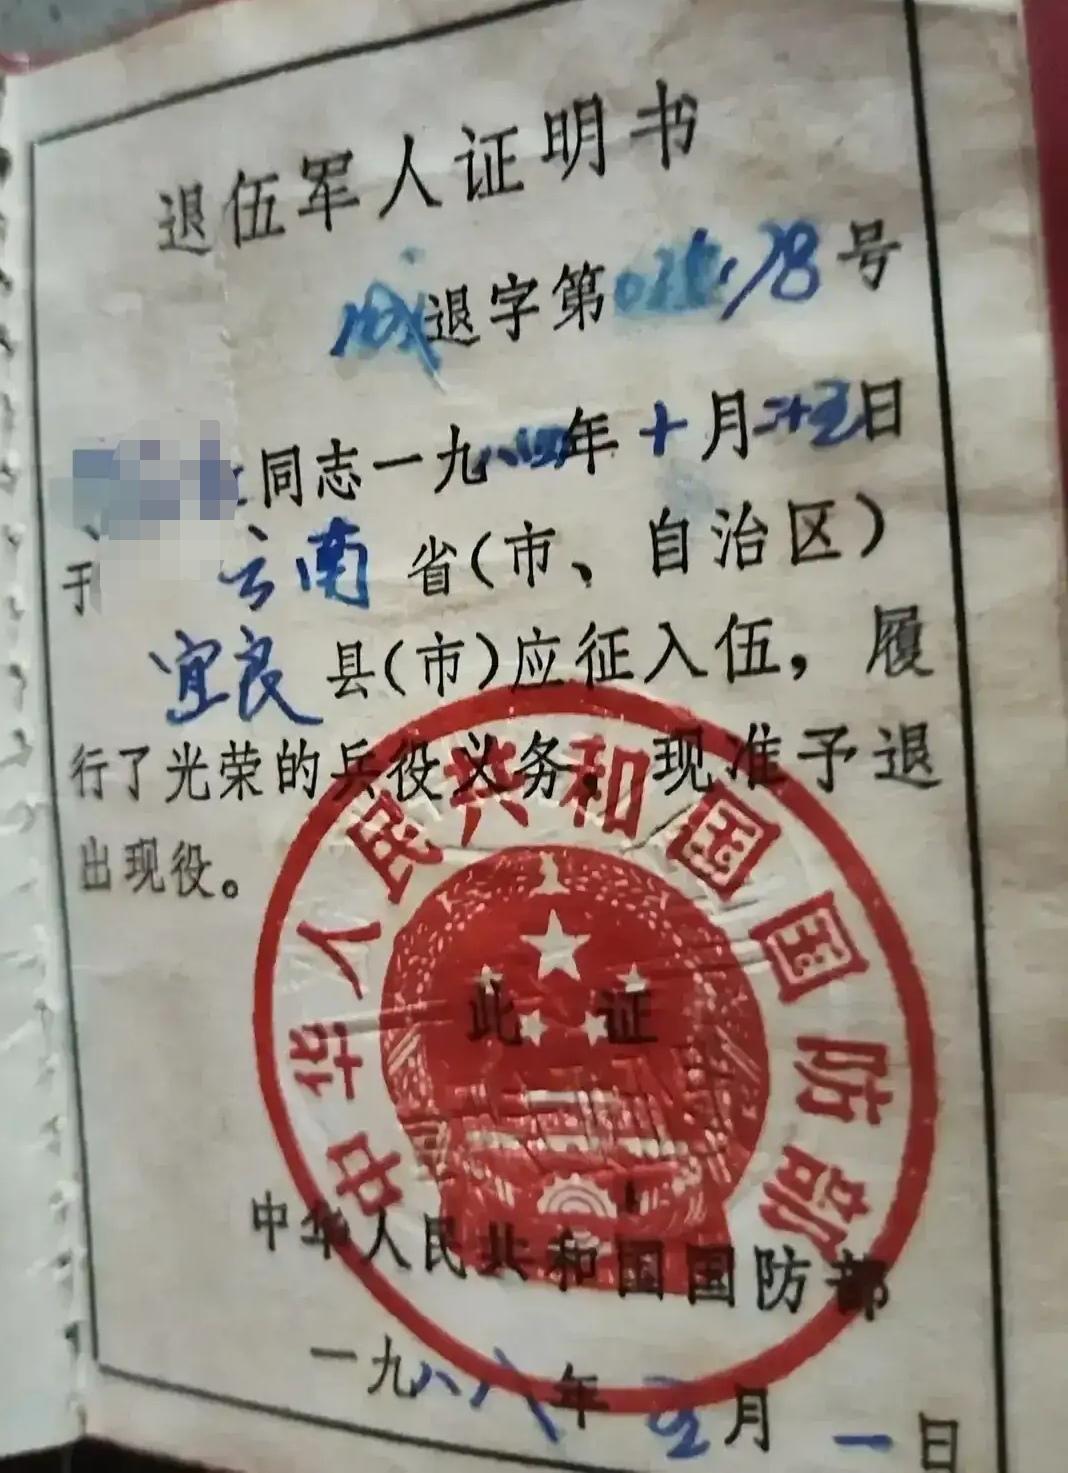 退伍军人证明书
成退字第 78号
同志一九八四年十月二十五日
于 云南省(市、自治区)
宜良县(市)应征入伍，履
行了光荣的兵役义务，现准予退
出现役。
此证
中华人民共和国国防部
中华人民共和国国防部
一九八八年 月一日